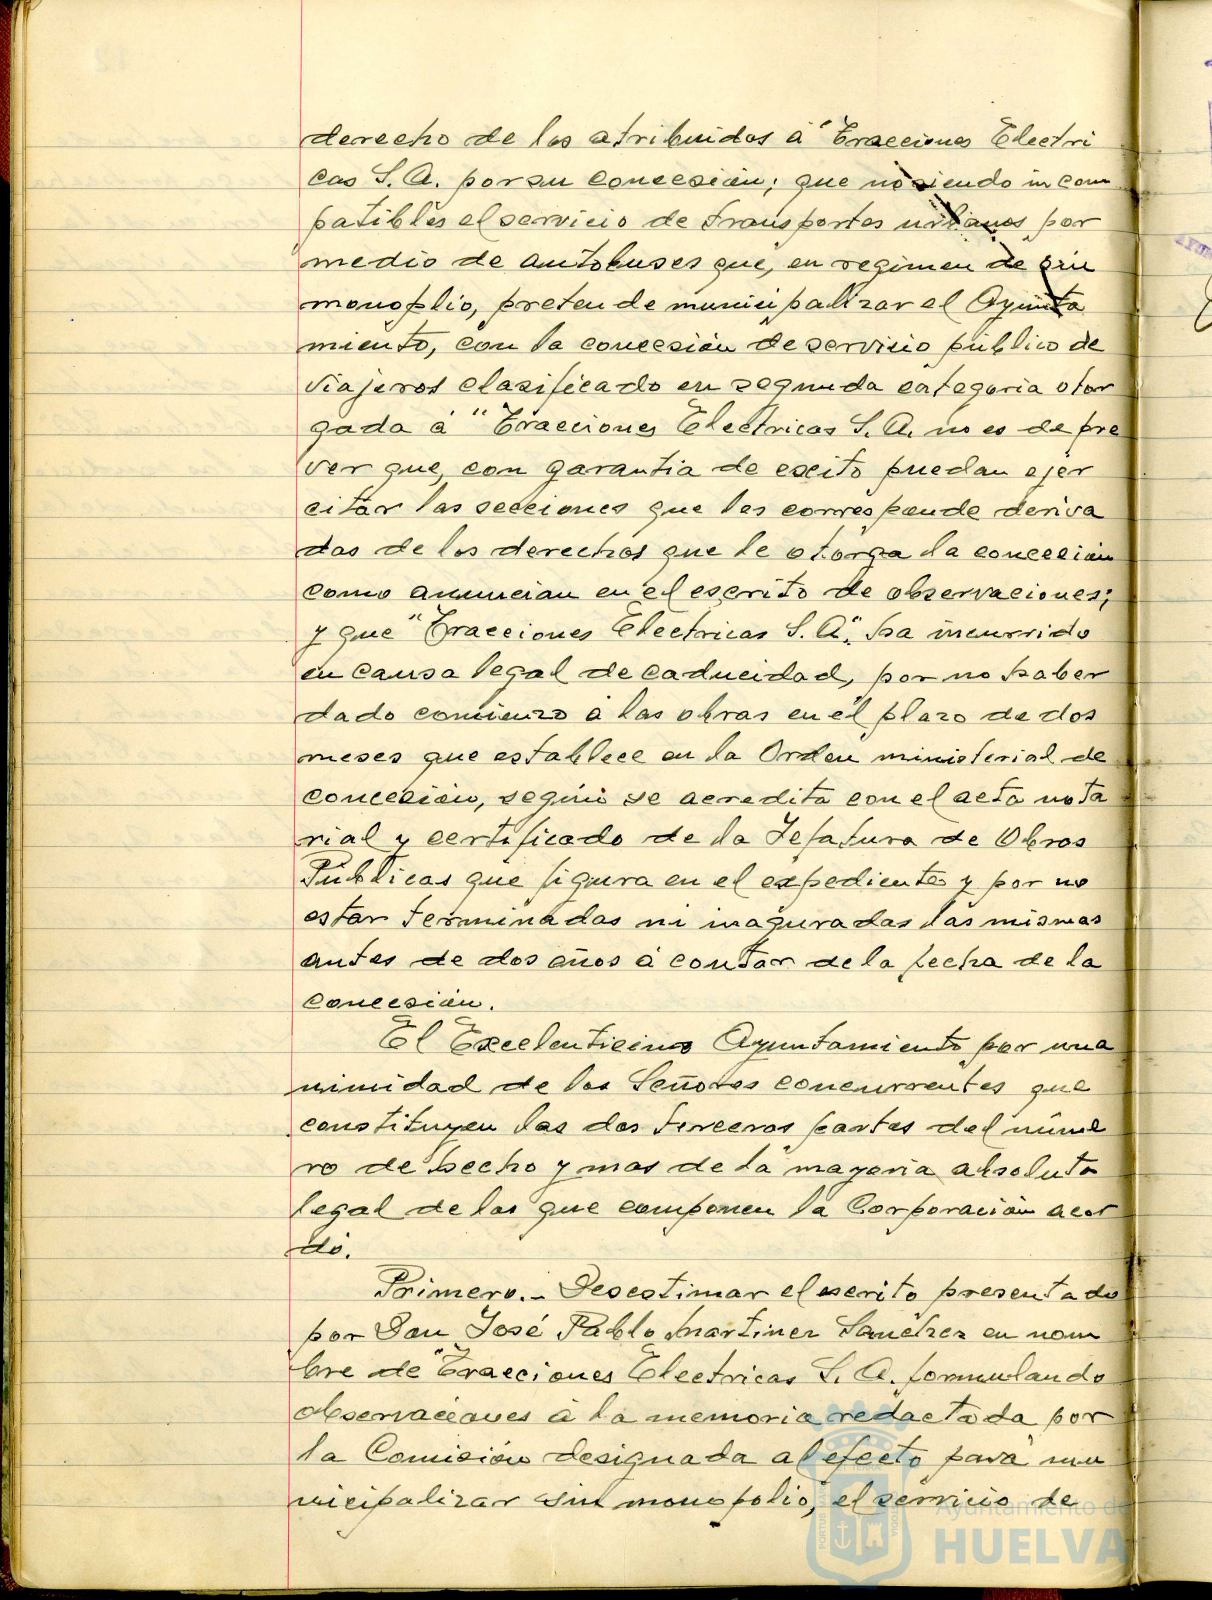 derecho de los atribuidos á "Tracciones Electri
cas S.A. por su concesión; que no siendo incom
patibles el servicio de transportes urbanos por
medio de autobuses que, en regimen de sin
monoplio, pretende municipalizar el Ayunta
miento, con la concesión de servicio público de
viajeros clasificado en segunda categoria otor
gada á "Tracciones Electricas S.A. no es de pre
ver que, con garantia de exito puedan ejer
citar las secciones que les corresponde deriva
das de los derechos que le otorga la concesión
como anuncian en el escrito de observaciones;
y que "Tracciones Electricas S.A." ha incurrido
en causa legal de caducidad, por no haber
dado comienzo á las obras en el plazo de dos
meses que establece en la Orden ministerial de
concesión, según se acredita con el acta nota
rial y certificado de la Jefatura de Obras
Públicas que figura en el expedientes y por no
estar terminadas ni inaguradas las mismas
antes de dos años á contar de la fecha de la
concesión.
El Excelentisimo Ayuntamiento por una
nimidad de los Señores concurrentes que
constituyen las dos terceras partes del núme
ro de hecho y mas de la mayoria absoluta
legal de los que componen la Corporación acor
dó.
Primero.- Desestimar el escrito presentado
por Don José Pablo Martinez Sanchez en nom
bre de "Tracciones Electricas S.A. formulando
observaciones á la memoria redactada por
la Comisión designada al efecto para mu
nicipalizar sin monopolio, el servicio de
Ayuntamiento de
HUELVA